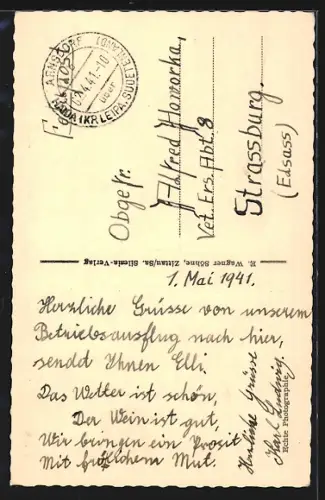 ARNSDORF
HAIDA (KR LEIPA, SUDETENGAU)
über
4.41.-10
Obgefr.
Alfred Howorka,
Vet. Ers. Abt. 8
Strassburg.
(Elsass)
R. Wagner Söhne, Zittau/Sa. Silesia-Verlag
1. Mai 1941.
Herzliche Grüsse von unserem
Betriebsausflug nach hier,
sendet Ihnen Elli.
Das Wetter ist schön,
Der Wein ist gut,
Wir bringen ein Prosit
Mit frohlichem Mut.
Herzliche Grüsse
Karl Ludwig.
Echte Photographie